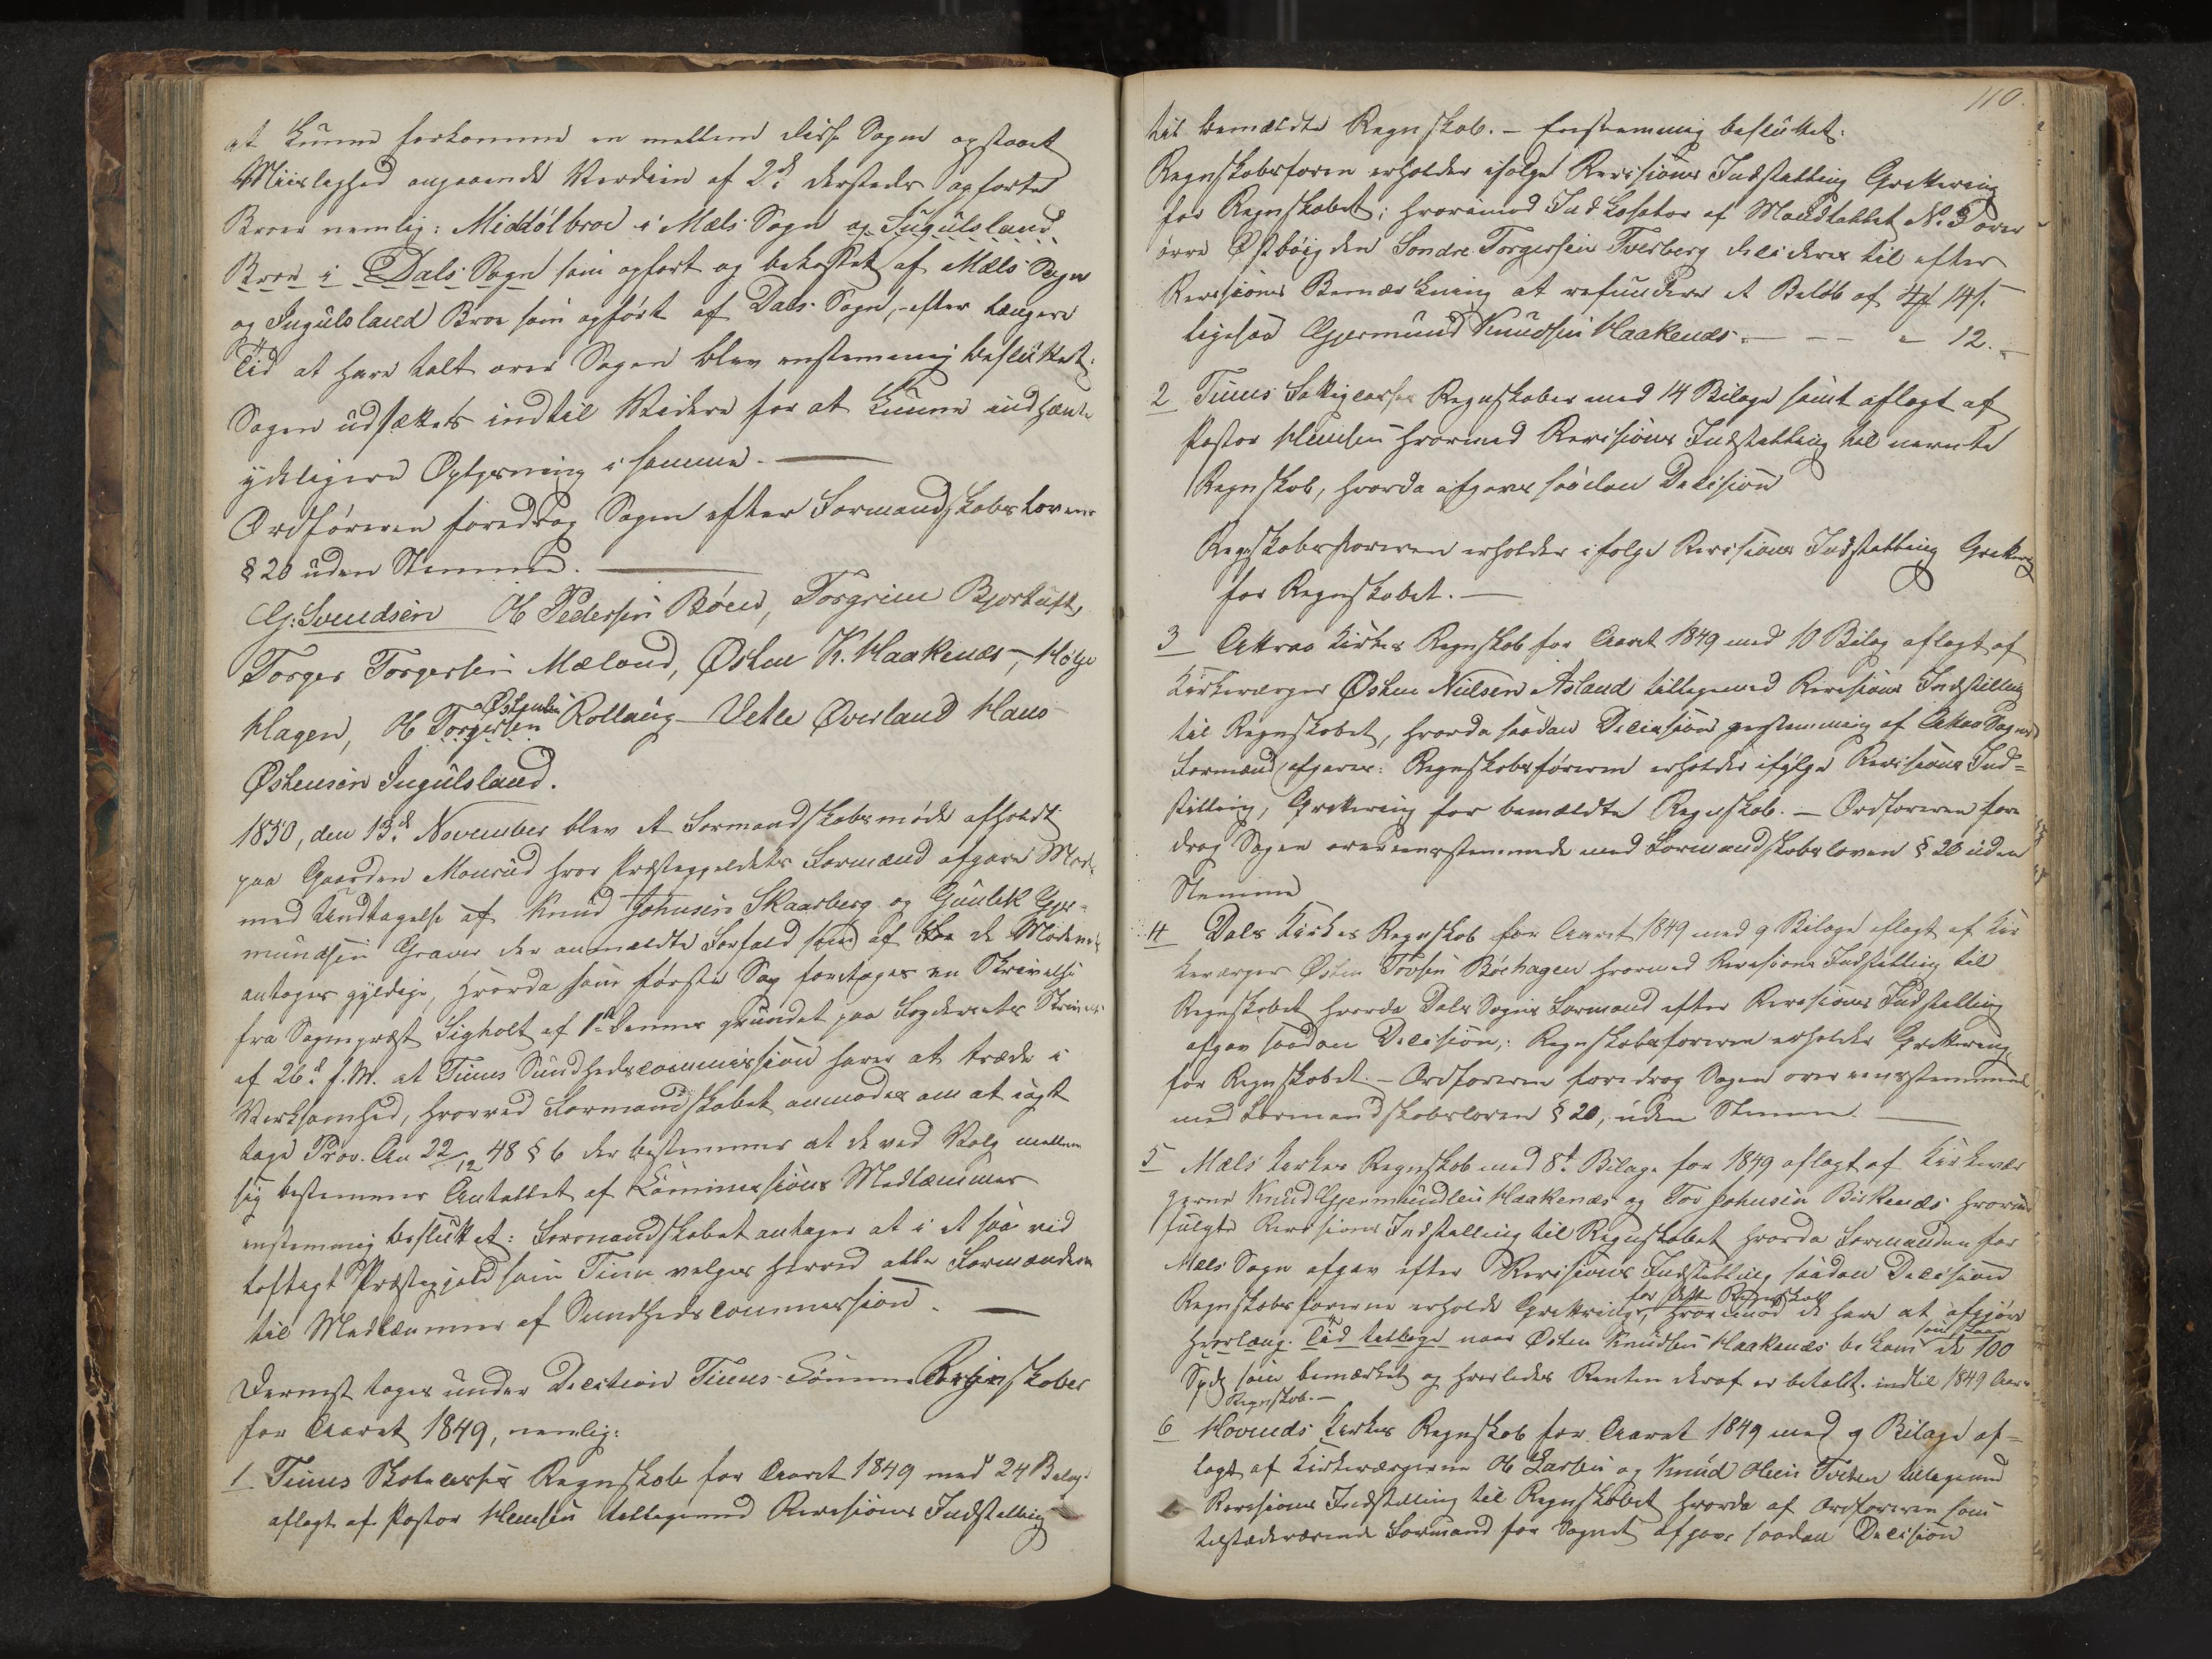 at kunne forkomme en mellem disse Sogne opstaaet
Mislighed angaaende Værdien af 2de dersteds opførte
Broer nemlig: Middølbroe i Mæls Sogn og Ingulsland
Broe i Dals Sogn som opført og bekostet af Mæls Sogn
og Ingulsland Broe som opført af Dals Sogn, efter længere
Tid at have talt over Sagen blev enstemmig besluttet:
Sagen udsættes indtil Videre for at kunne indhente
ydeligere Oplysning i samme. —
Ordføreren foredrog Sagen efter Formandskabslovens
§ 20 uden Stemme. —
G: Svendsen O Pedersen Bøen, Torgrim Bjortuft,
Torger Torgersen Mæland, Østen K. Haakenæs, Hølje
Hagen, O Torgersen Østensen Rollaug Vetle Øverland Hans
Østensen Ingulsland.
1850, den 13de November blev et Formandskabsmøde afholdt
paa Gaarden Monrud hvor Præstegjeldets Formænd afgave Møde
med Undtagelse af Knud Johnsen Skaarberg og Gunlek Gjer=
mundsen Graver der anmeldte Forfald som af de Mødende
antoges gyldige, hvorda som første Sag foretoges en Skrivelse
fra Sognepræst Sigholt af 1ste dennes grundet paa Fogderiets Skrivelse
af 26de f. M. at Tinns Sundhedscommission haver at træde i
Virksomhed, hvorved Formandskabet anmodes om at iagt
tage Prov. An 22/12 48 § 6 der bestemmer at de ved Valg mellem
sig bestemmer Antallet af Commissions Medlemmer
enstemmig besluttet: Formandskabet antager at i et saa vid
løftigt Præstegjeld som Tinn vælges herved alle Formændene
til Medlemmer af Sundhedscommission. —
Dernest toges under Decition Tinns Comune Regnskaber
for Aaret 1849, nemlig:
1 Tinns Skolecasses Regnskab for Aaret 1849 med 24 Bilage
aflagt af Pastor Hensen tilligemed Revisions Indstilling
110.
til bemældte Regnskab. — Enstemmig besluttet:
Regnskabsføreren erholder ifølge Revisions Indstilling Qvittering
for Regnskabet; hvorimod Indkasator af Mandtallet No 3 over
øvre Østbøigden Sondre Torgersen Tverberg desideres til efter
Revisions Bemærkning at refundere et Beløb af 14 s.
ligesaa Gjermund Knudsen Haakenæs. — — " 12. —
2 Tinns Fattigcasses Regnskaber med 14 Bilage samt aflagt af
Pastor Hensen hvormed Revisions Indstilling til nævnte
Regnskab, hvorda afgaves saadan Decision
Regnskabsføreren erholder ifølge Revisions Indstilling Qvittering
for Regnskabet. —
3 Attraa Kirkes Regnskab for Aaret 1849 med 10 Bilag aflagt af
Kirkeværger Østen Nielsen Asland tilligemed Revisions Indstilling
til Regnskabet, hvorda saadan Decision af Attraa Sogns
Formænd afgaves: Regnskabsføreren erholder ifølge Revisions Ind=
stilling, Qvittering for bemældte Regnskab. — Ordføreren fore
drog Sagen overeensstemmende med Formandskabsloven § 20 uden
Stemme
4 Dals Kirkes Regnskab for Aaret 1849 med 9 Bilage aflagt af Kir
keværger Østen Tovsen Bøehagen hvormed Revisions Indstilling til
Regnskabet hvorda Dals Sogns Formænd efter Revisions Indstilling
afgav saadan Decision,: Regnskabsføreren erholder Qvittering
for Regnskabet. — Ordføreren foredrog Sagen overeensstemmende
med Formandskabsloven § 20, uden Stemme. —
5 Mæls Kirkes Regnskab med 8te Bilage for 1849 aflagt af Kirkevær
gerne Knud Gjermundsen Haakenæs og Tor Johnsen Birkenæs hvormed
fulgte Revisions Indstilling til Regnskabet hvorda Formanden for
Mæls Sogn afgav efter Revisions Indstilling saadan Decision
Regnskabsførerne erholde Qvittering for dette Regnskab, hvorimod de have at afgjøre
hvorlang Tid tillige naar Østen Knudsen Haakenæs bekom som Laan de 100
Spd som bemærket og hvorledes Renten deraf er betalt indtil 1849 Aars
Regnskab. —
6 Hovinds Kirkes Regnskab for Aaret 1849 med 9 Bilage af=
lagt af Kirkeværgerne O Larsen og Knud Olsen Tveten tilligemed
Revisions Indstilling til Regnskabet hvorda af Ordføreren som
tilstædeværende Formand for Sognet afgave saadan Decision